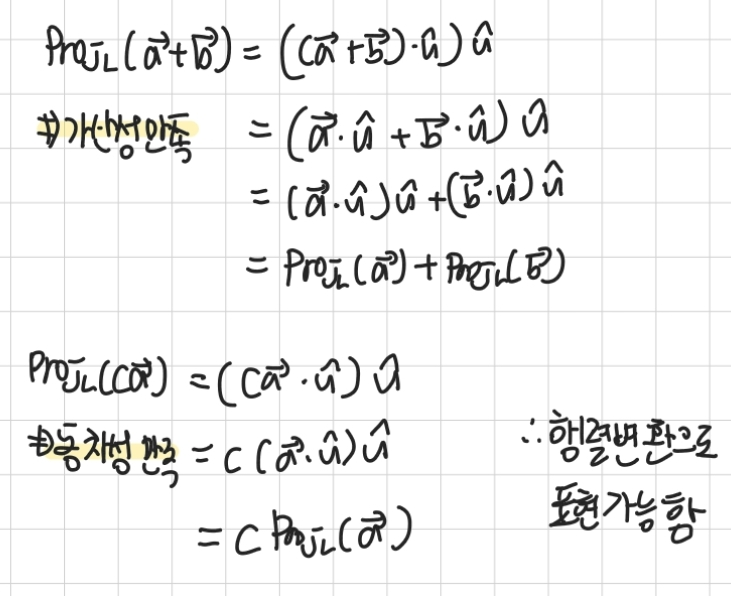 Proj_L(a⃗+b⃗) = ((a⃗+b⃗)·û)û
⇒가산성만족 = (a⃗·û + b⃗·û)û
= (a⃗·û)û+(b⃗·û)û
= Proj_L(a⃗)+Proj_L(b⃗)
Proj_L(ca⃗) = (ca⃗·û)û
⇒동차성 만족 = c(a⃗·û)û
= c Proj_L(a⃗)
∴ 행렬변환으로
표현가능함